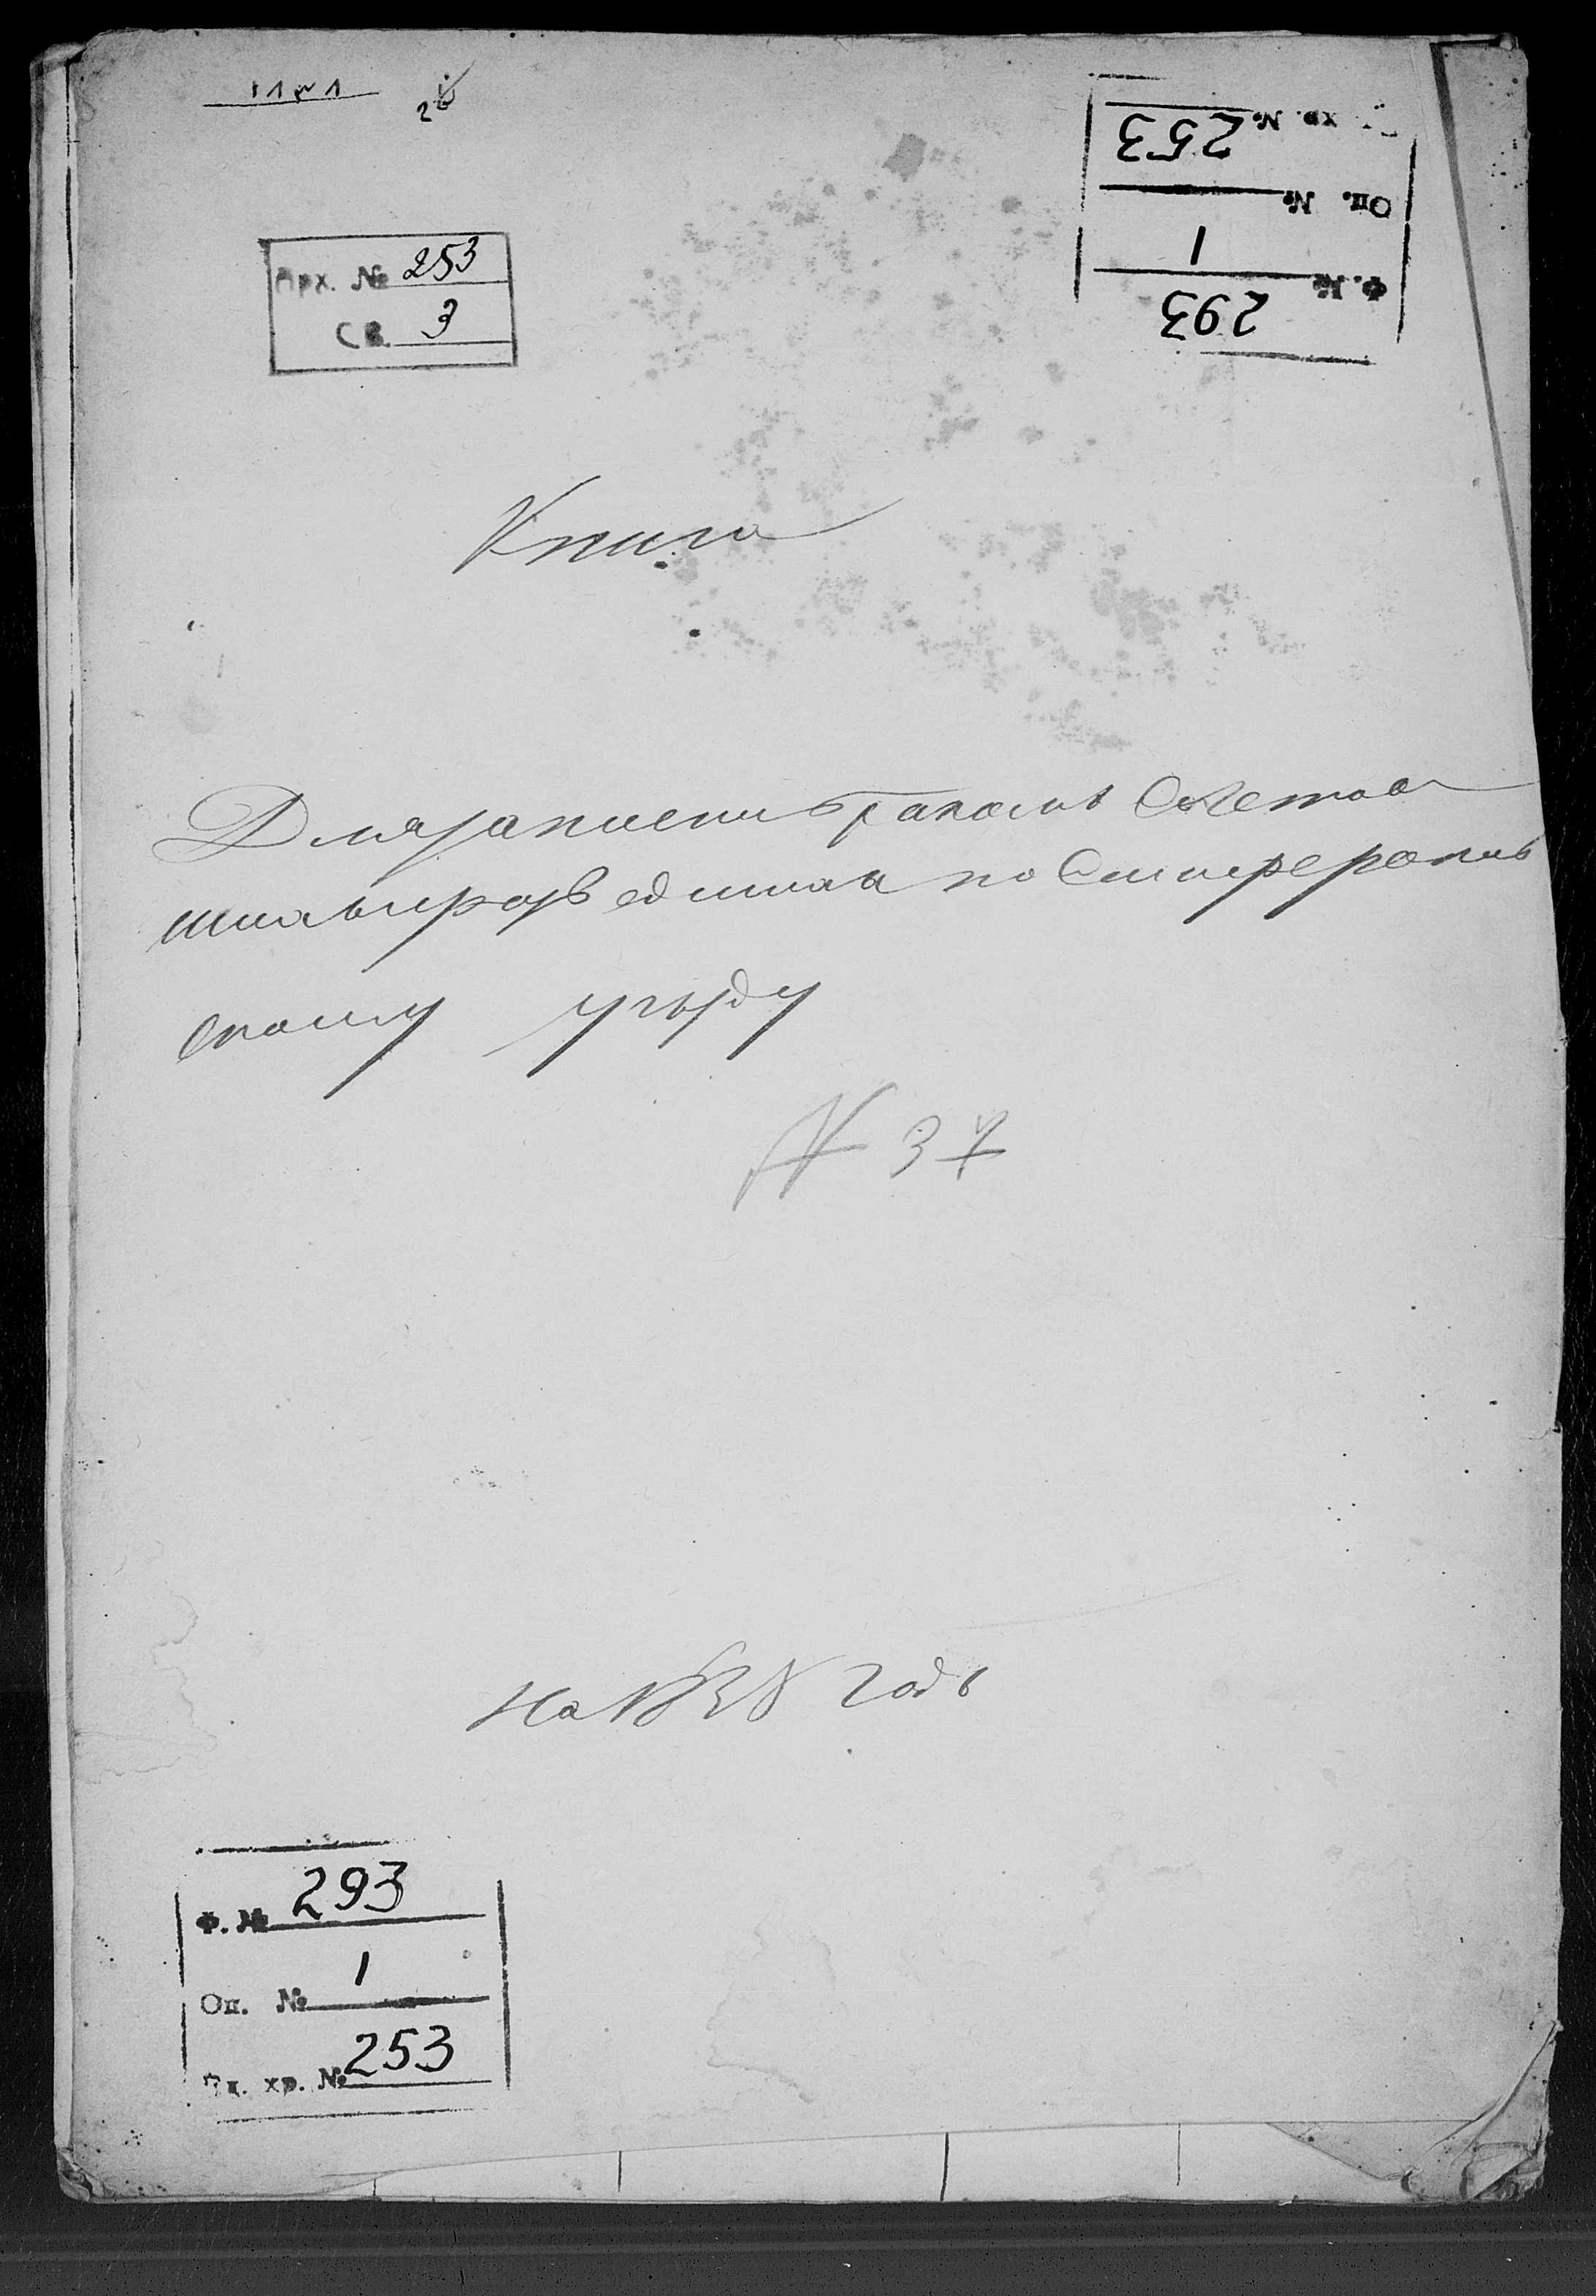 ١٨٣٨
Арх. № 253
Св. 3
Ф. № 293
Оп. № 1
хр. № 253
Книга
Для записи браковъ
по Симферополь
скому уѣзду
№ 37
На 1838 годъ
Ф. № 293
Оп. № 1
Ед. хр. № 253